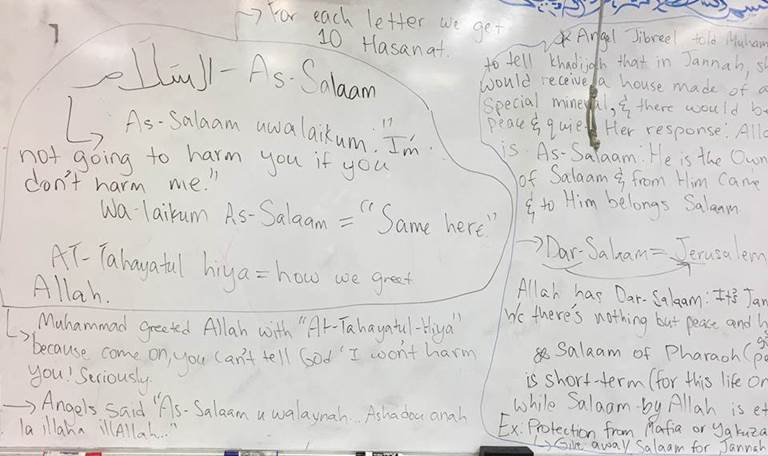 For each letter we get
10 Hasanat.
السلام - As-Salaam
As-Salaam uwalaikum: "I'm
not going to harm you if you
don't harm me."
Wa-laikum As-Salaam = "Same here"
AT-Tahayatul hiya = how we greet
Allah.
Muhammad greeted Allah with "At-Tahayatul-Hiya"
because come on, you can't tell God "I won't harm
you! Seriously.
Angels said "As-Salaam u walaynah... Ashadou anah
la illaha illAllah..."
* Angel Jibreel told Muham
to tell Khadijah that in Jannah, sh
would receive a house made of a
special mineral, & there would be
peace & quiet. Her response: Alla
is As-Salaam: He is the Own
of Salaam & from Him came
& to Him belongs Salaam.
Dar-Salaam = Jerusalem
Allah has Dar-Salaam: It's Jan
b/c there's nothing but peace and h
Salaam of Pharaoh (
is short-term (for this life on
while Salaam by Allah is et
Ex: Protection from Mafia or Yakuza
Give away Salaam for Jannah